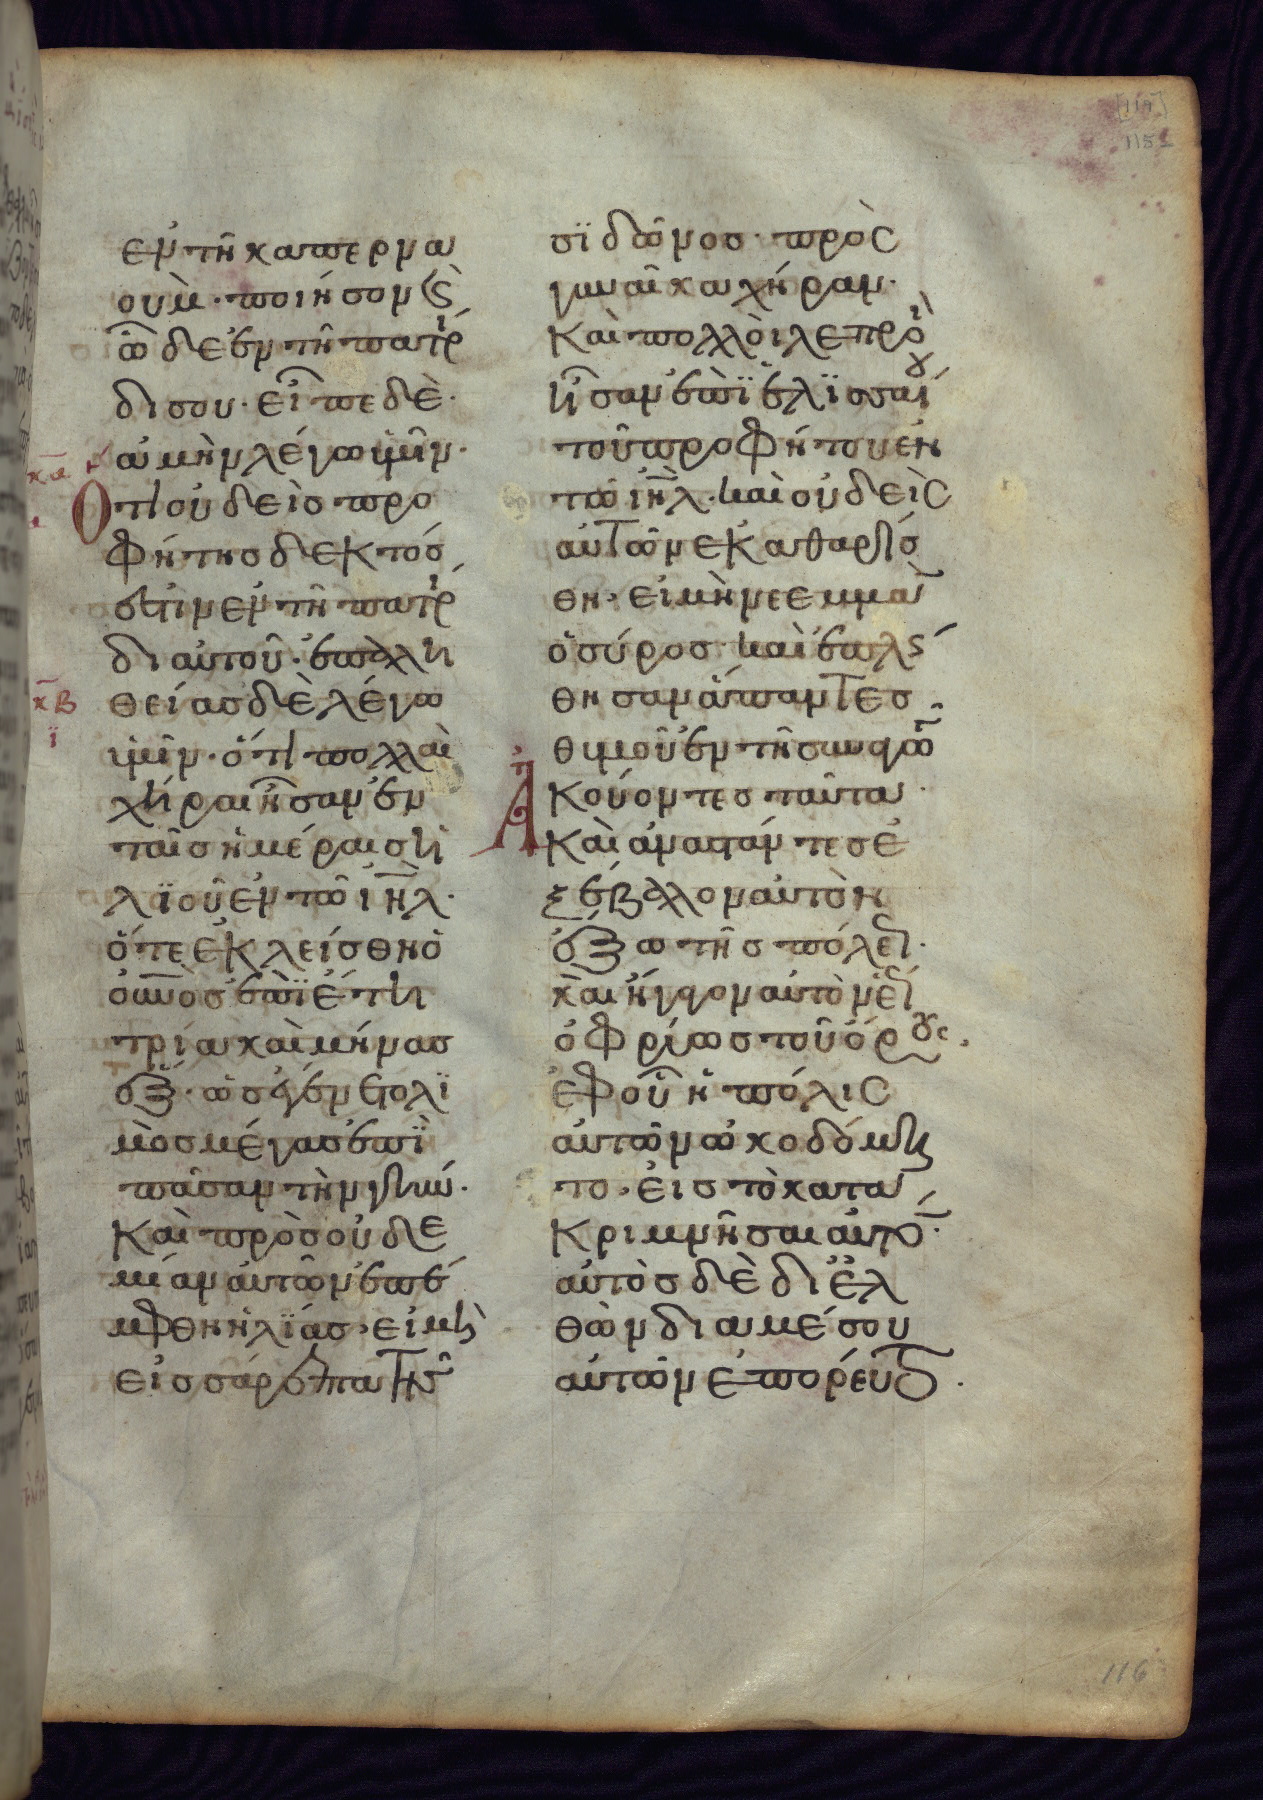 [114]
115
ἐν τῆ καπερνα
ουμ· ποίησον κ(αὶ)
ὧδε ἐν τῆ πατρί
δι σου· εἶπε δὲ·
ἀμὴν λέγω ὑμῖν·
κα
Ὅτι οὐδεὶς προ
φήτης δεκτός
ἐστιν ἐν τῆ πατρί
δι αὐτοῦ· ἐπ' ἀλη
κβ
θείας δὲ λέγω
ϊ
ὑμῖν· ὅτι πολλαὶ
χῆραι ἦσαν ἐν
ταῖς ἡμέραις ἡ
λϊοῦ ἐν τῶ ἰηλ·
ὅτε ἐκλείσθη ὁ
οὐνος ἐπὶ ἔτη
τρία καὶ μῆνας
ἕξ· ὡς ἐγένετο λϊ
μὸς μέγας ἐπῒ
πᾶσαν τὴν γῆν·
Καὶ πρὸς οὐδε
μίαν αὐτῶν ἐπέ
μφθη ἠλΐας· εἰ μὴ
εἰς σάρεπτα τῆς
σϊδῶνος· πρὸς
γυναῖκα χήραν·
Καὶ πολλοὶ λεπροὶ
ἦσαν ἐπῒ ἐλϊσσαίου
τοῦ προφήτου ἐν
τῶ ἰηλ· καὶ οὐδεὶς
αὐτῶν ἐκαθαρίσ
θη· εἰ μὴ νεεμμὰν
ὁ σύρος· καὶ ἐπλή
σθησαν ἅπαντες
θυμοῦ ἐν τῆ συναγωγῆ
Ἀκούοντες ταῦτα·
Καὶ ἀναστάντες ἐ
ξέβαλλον αὐτὸν
ἔξω τῆς πόλεως·
καὶ ἤγαγον αὐτὸν ἕως
ὀφρύος τοῦ ὄρους·
ἐφ' οὗ ἡ πόλις
αὐτῶν ὠκοδόμη
το· εἰς τὸ κατα
κρημνῆσαι αὐτόν·
αὐτὸς δὲ διελ
θὼν δια μέσου
αὐτῶν ἐπορεύετο·
116